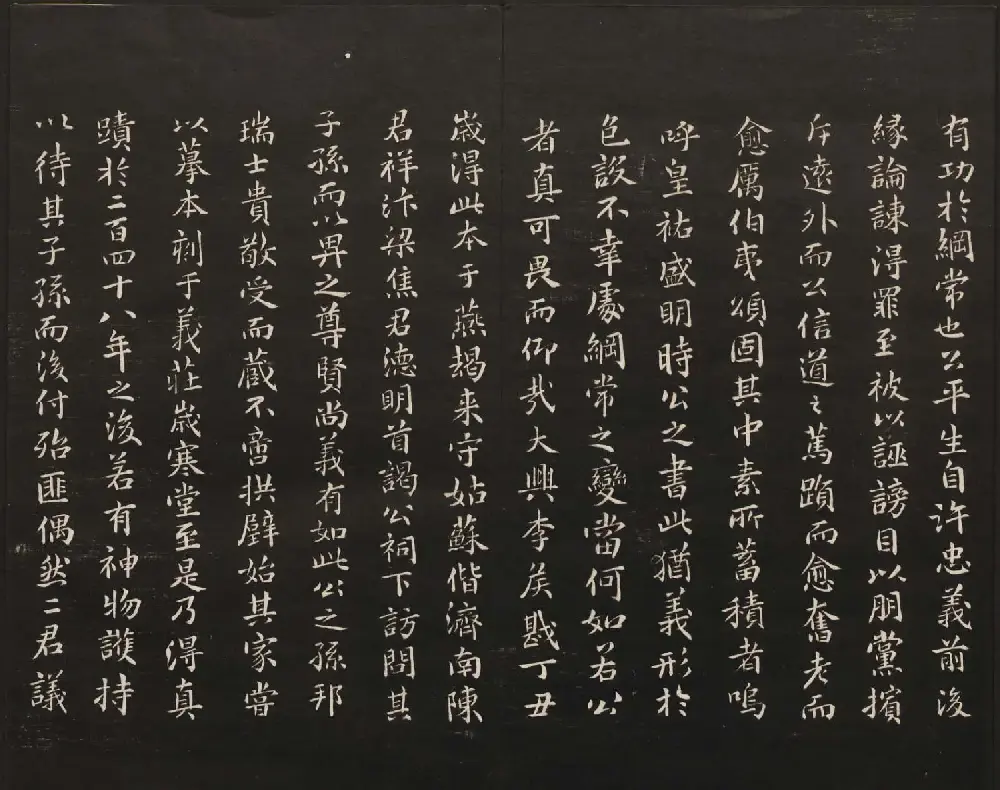 有功於綱常也公平生自許忠義前後
緣論諫得罪至被以誣謗目以朋黨擯
斥遠外而公信道之篤躓而愈奮老而
愈厲伯夷頌固其中素所蓄積者嗚
呼皇祐盛明時公之書此猶義形於
色設不幸處綱常之變當何如若公
者真可畏而仰哉大興李侯戡丁丑
歲得此本于燕朅来守姑蘇偕濟南陳
君祥汴梁焦君德明首謁公祠下訪問其
子孫而以畀之尊賢尚義有如此公之孫邦
瑞士貴敬受而藏不啻拱璧始其家嘗
以摹本刻于義莊歲寒堂至是乃得真
蹟於二百四十八年之後若有神物護持
以待其子孫而後付殆匪偶然二君議